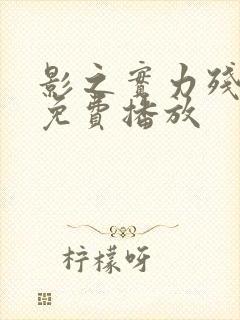 影之實力殘
免費播放
柠檬呀